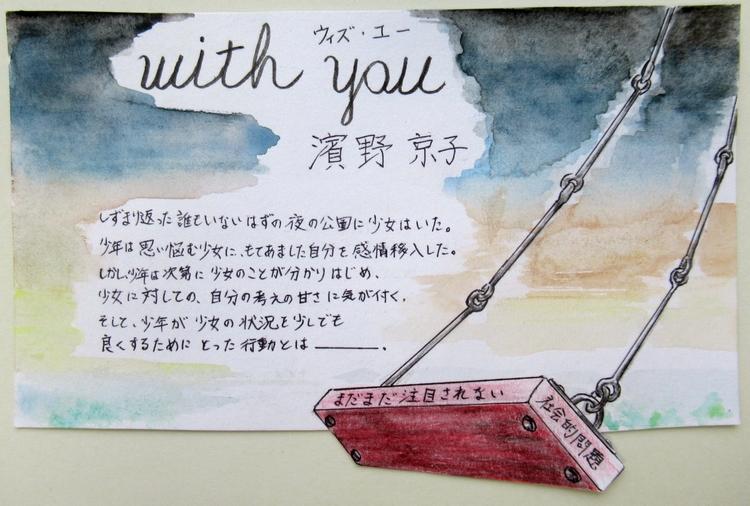 ウィズ・ユー
with you
濱野 京子
しずまり返った誰もいないはずの夜の公園に少女はいた。
少年は思い悩む少女に、もてあました自分を感情移入した。
しかし、少年は次第に少女のことが分かりはじめ、
少女に対しての、自分の考えの甘さに気が付く。
そして、少年が少女の状況を少しでも
良くするためにとった行動とは―――。
まだまだ注目されない
社会的問題